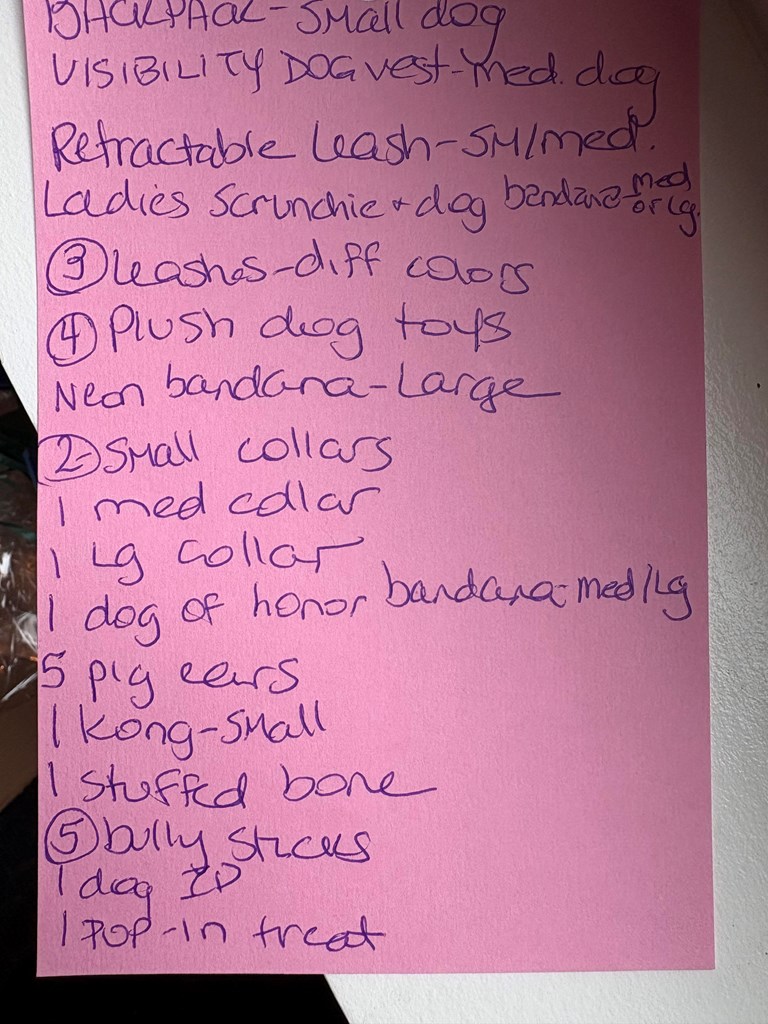 BACKPACK-Small dog
VISIBILITY DOG vest-Med. dog
Retractable leash-SM/med.
Ladies Scrunchie + dog bandana-med or Lg.
③ leashes-diff colors
④ Plush dog toys
Neon bandana-Large
② Small collars
1 med collar
1 Lg collar
1 dog of honor bandana-med/Lg
5 pig ears
1 Kong-Small
1 Stuffed bone
⑤ bully sticks
1 dog ID
1 POP-in treat